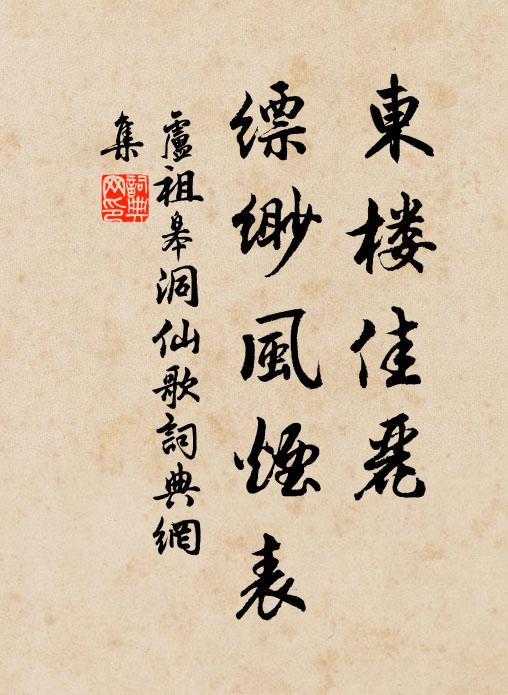 東楼佳麗
縹緲風煙表
盧祖皋洞仙歌詞典網
集
詞典网印